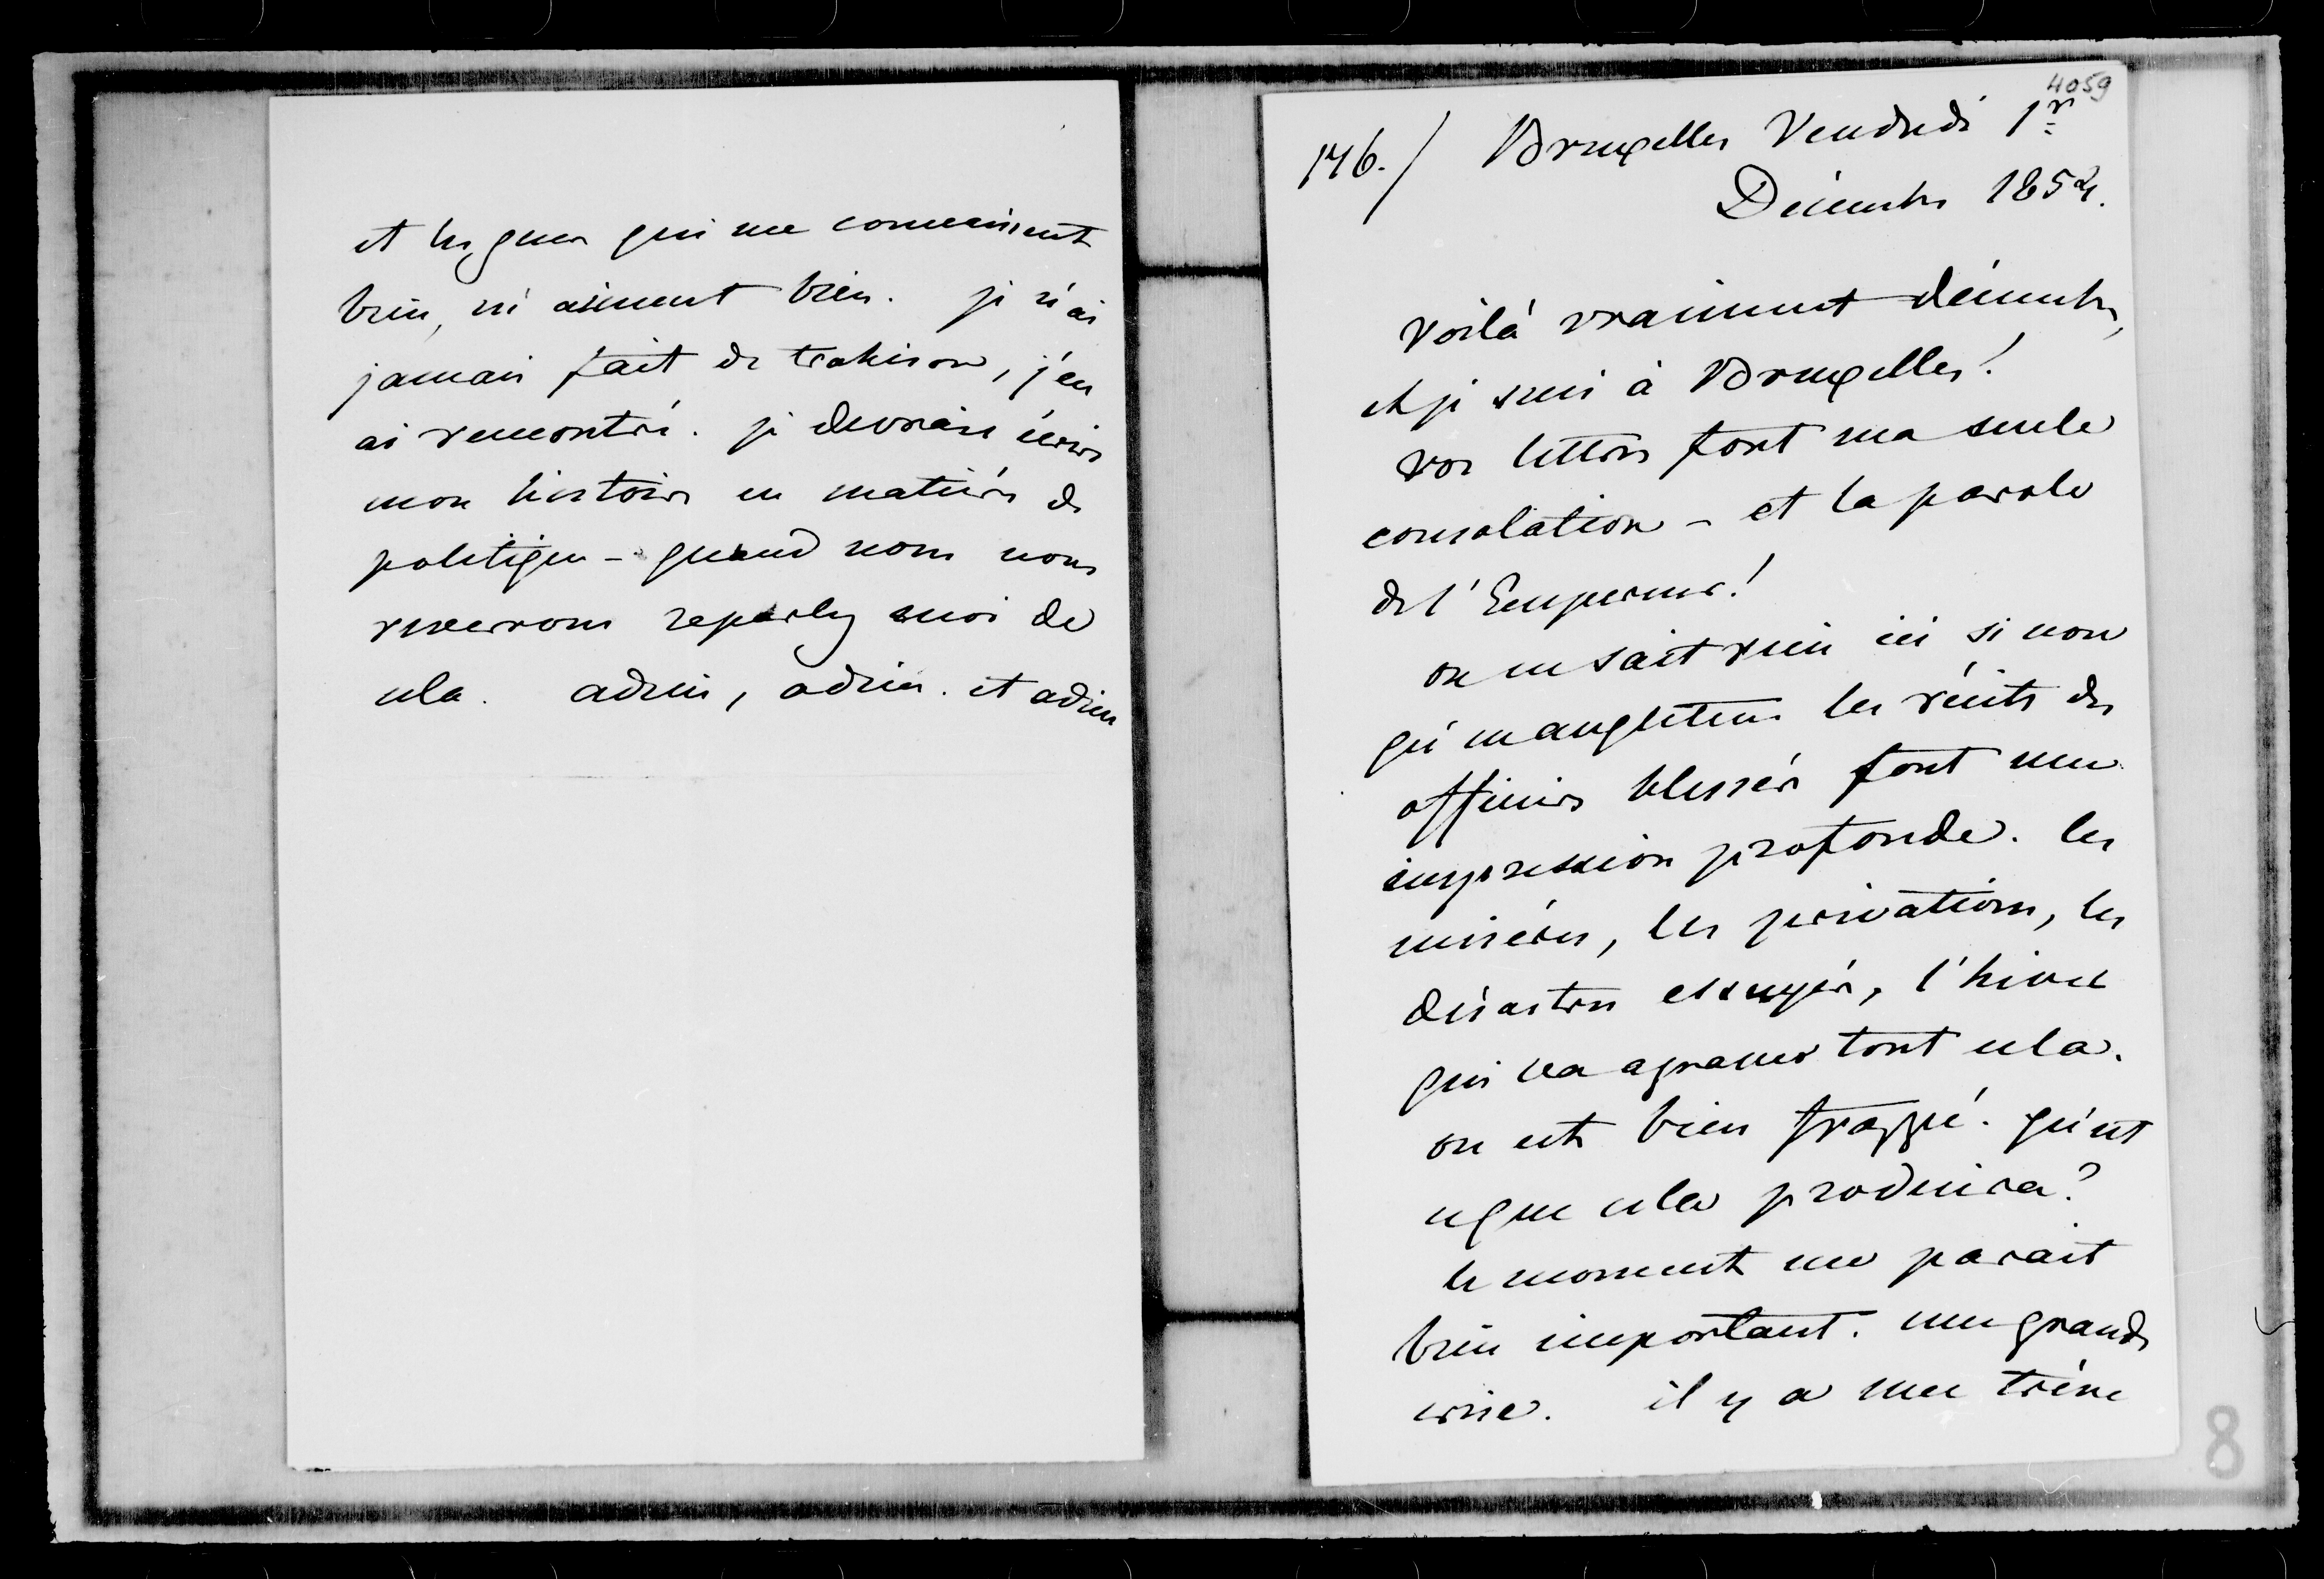 et les gens qui me connaissent
bien, m'aiment bien. je n'ai
jamais fait de trahison, j'en
ai rencontré. je devrais écrire
mon histoire en matière de
politique - quand nous nous
reverrons reparlez moi de
cela. adieu, adieu. et adieu
4059
146./ Bruxelles Vendredi 1er
Décembre 1854.
Voilà vraiment décembre,
et je suis à Bruxelles!
vos lettres font ma seule
consolation - et la parole
de l'Empereur!
on ne sait rien ici si non
qu'en angleterre les récits des
officiers blessés font une
impression profonde. les
misères, les privations, les
désastres essuyés, l'hiver
qui va agraver tout cela.
on est bien frappé. qu'est
ce que cela produira?
le moment me parait
bien important. une grande
crise. il y a une trève
8